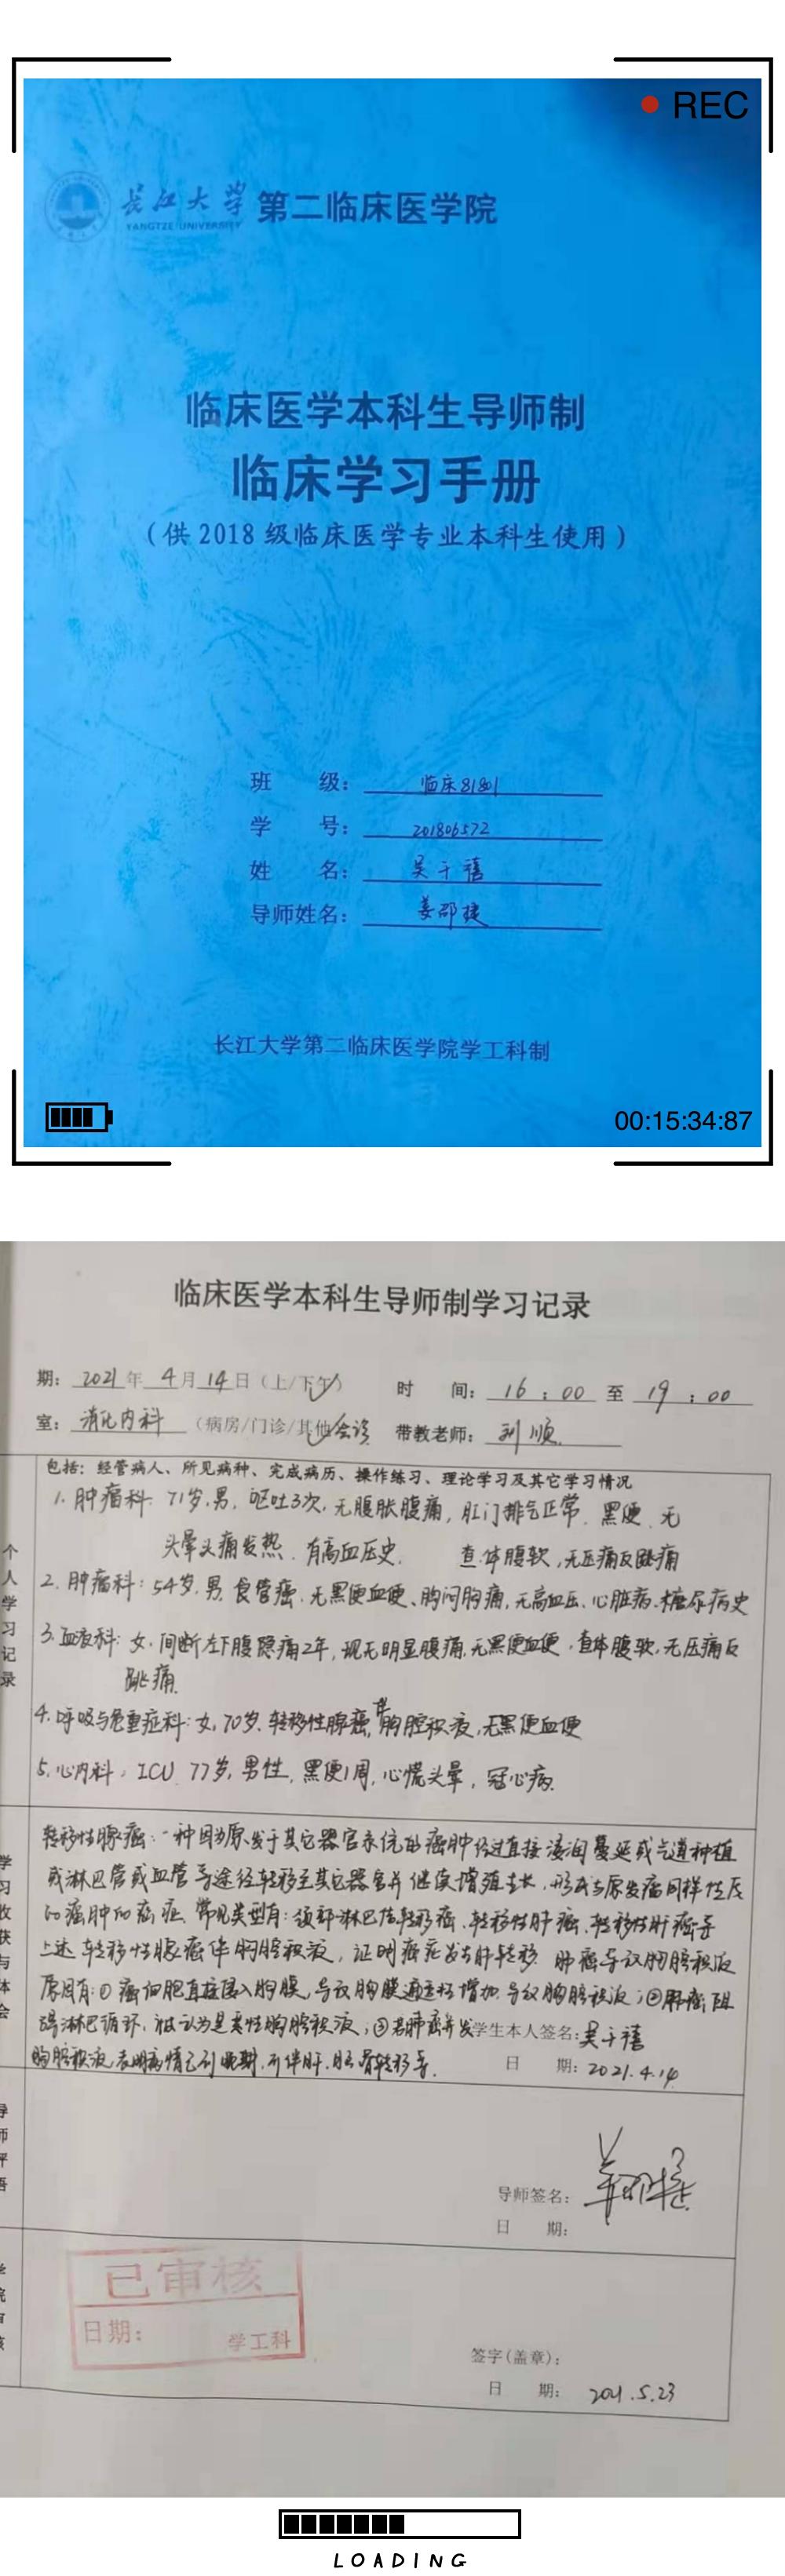 REC
长江大学 第二临床医学院
YANGTZE UNIVERSITY
临床医学本科生导师制
临床学习手册
（供 2018 级临床医学专业本科生使用）
班 级： 临床81801
学 号： 201806572
姓 名： 吴千禧
导师姓名： 姜邵捷
长江大学第二临床医学院学工科制
00:15:34:87
临床医学本科生导师制学习记录
期： 2021 年 4 月 14 日（上/下午） 时 间： 16 ： 00 至 19 ： 00
室： 消化内科 （病房/门诊/其他 会诊 带教老师： 刘顺
包括：经管病人、所见病种、完成病历、操作练习、理论学习及其它学习情况
个人学习记录
1. 肿瘤科：71岁，男，呕吐3次，无腹胀腹痛，肛门排气正常，黑便，无
头晕头痛发热．有高血压史． 查体腹软，无压痛反跳痛
2. 肿瘤科：54岁，男，食管癌．无黑便血便、胸闷胸痛，无高血压、心脏病、糖尿病史
3. 血液科：女，间断左下腹隐痛2年，现无明显腹痛，无黑便血便，查体腹软，无压痛反
跳痛．
4. 呼吸与危重症科：女，70岁．转移性腺癌，伴胸腔积液，无黑便血便
5. 心内科：ICU 77岁，男性，黑便1周，心慌头晕，冠心病．
学习收获与体会
转移性腺癌：一种因为原发于其它器官系统的癌肿经过直接浸润蔓延或气道种植
或淋巴管或血管等途径转移至其它器官并继续增殖生长，形成与原发癌同样性质
的癌肿的癌症．常见类型有：颈部淋巴结转移癌、转移性肝癌、转移性肝癌等
上述转移性腺癌伴胸腔积液，证明癌症发生肝转移．肺癌导致胸腔积液
原因有：①癌细胞直接侵入胸膜，导致胸膜通透性增加，导致胸腔积液；②肿瘤阻
碍淋巴循环，被认为是类性胸腔积液；③若肺癌并发 学生本人签名：吴千禧
胸腔积液，表明病情已到晚期，可伴肝、脑、骨转移等．
日 期：2021.4.14
导师评语
导师签名： 姜邵捷
日 期：
学院审核
已审核
日期： 学工科
签字（盖章）：
日 期： 2021.5.23
LOADING